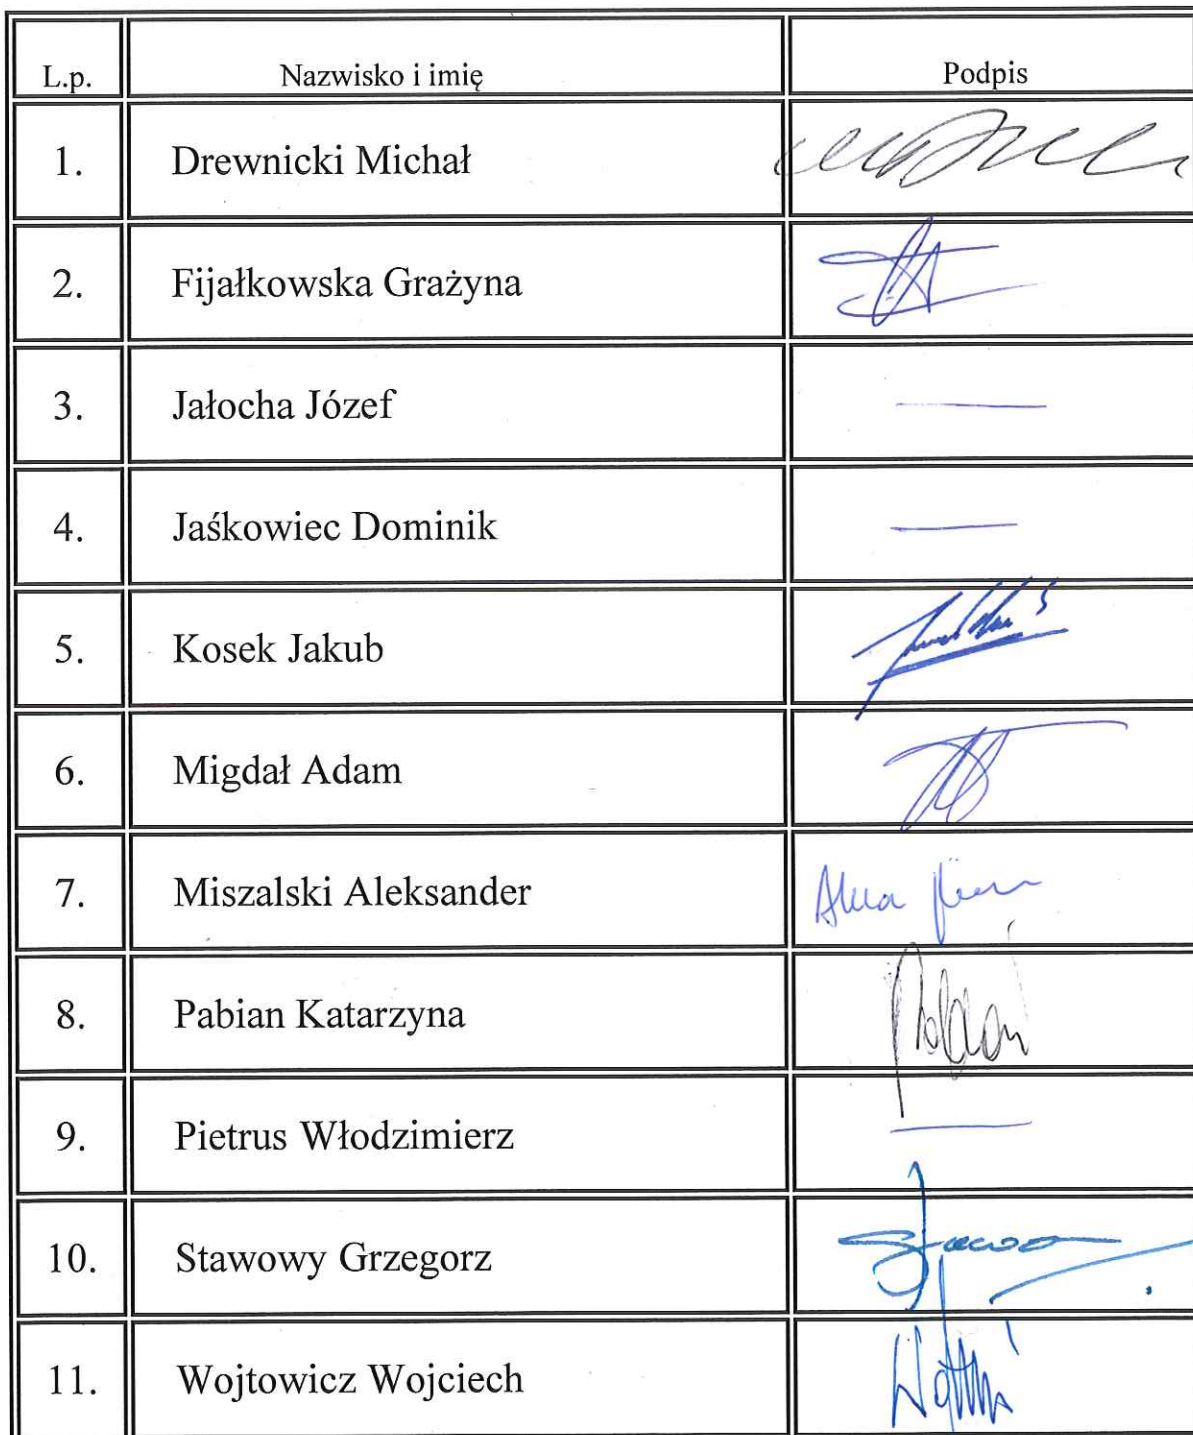 L.p. Nazwisko i imię Podpis
1. Drewnicki Michał
2. Fijałkowska Grażyna
3. Jałocha Józef —
4. Jaśkowiec Dominik —
5. Kosek Jakub
6. Migdał Adam
7. Miszalski Aleksander
8. Pabian Katarzyna
9. Pietrus Włodzimierz —
10. Stawowy Grzegorz
11. Wojtowicz Wojciech